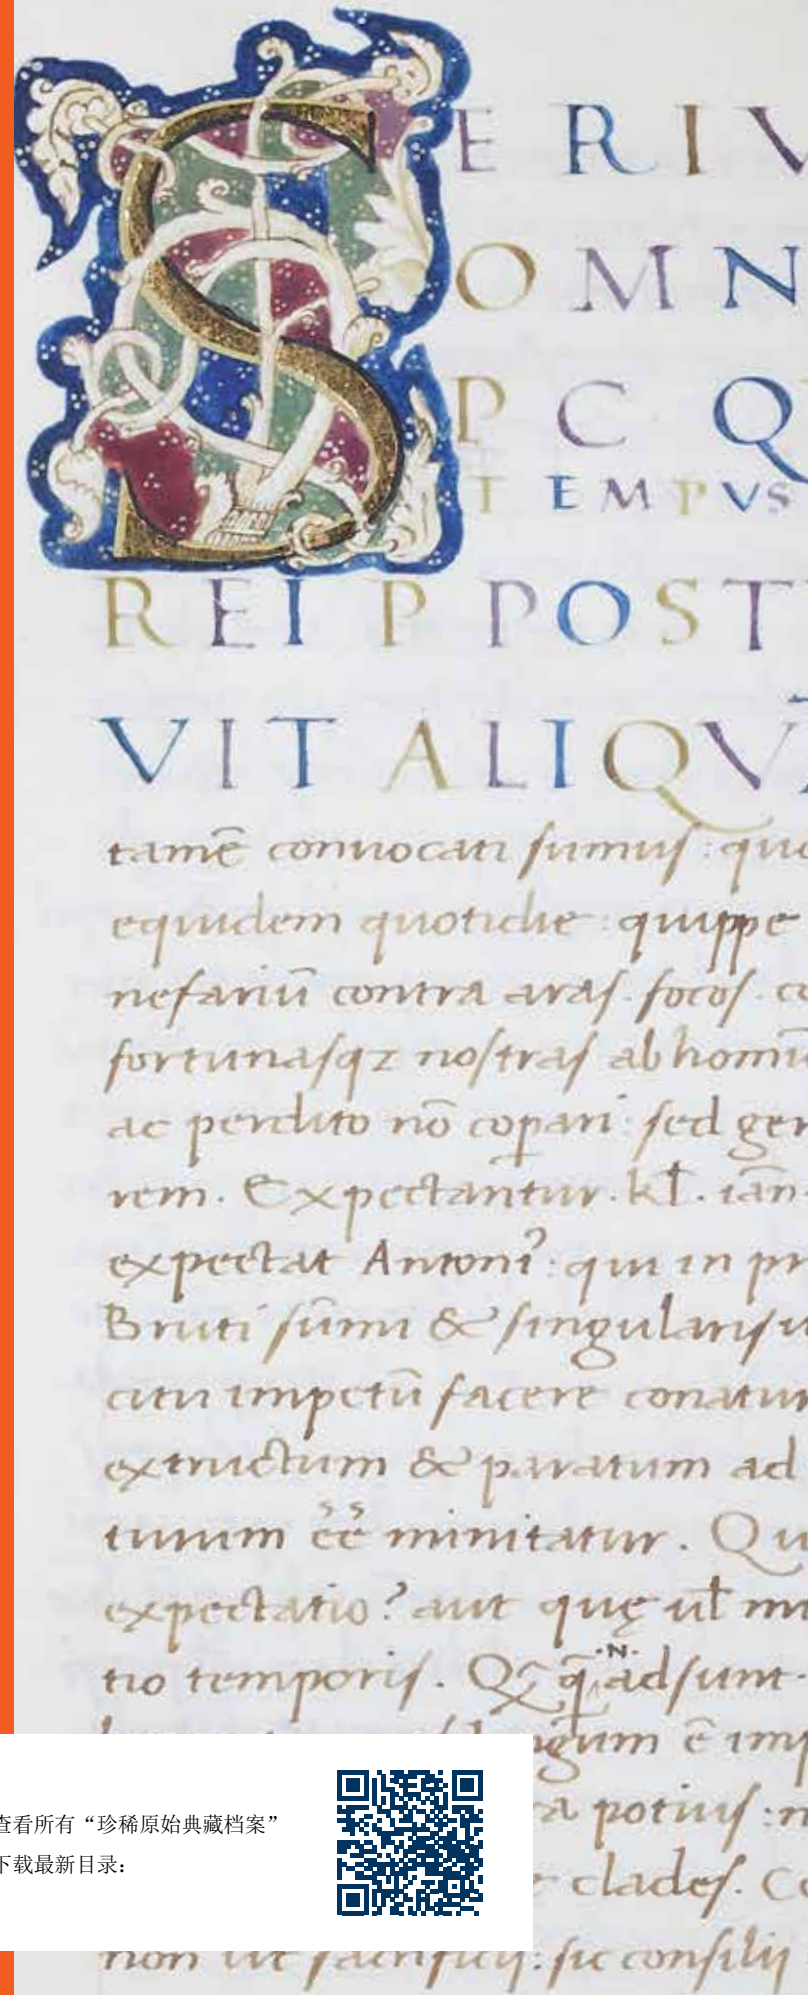 SERIV
OMN
P C Q
TEMPVS
REI P POST
VIT ALIQVĀ
tamē conuocati sumus : quo
equidem quotidie : quippe
nefariū contra aras . focos . co
fortunasqz nostras ab homi
ac perdito nō cōpari : sed ger
rem . Expectantur . kł . ian
expectat Antoni⁹ : qui in pr
Bruti sūmi & singularis u
citū impetū facere conatur
extructum & paratum ad
turum eē minitatur . Qu
expectatio ? aut quę uł mi
tio temporis . adsunt
ē imp
potius : n
clades . Co
non ut sacrificij : sic consilij
查看所有“珍稀原始典藏档案”
下载最新目录：